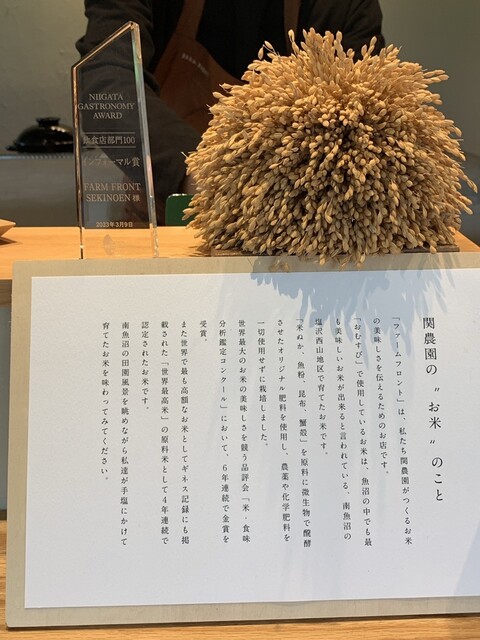 NIIGATA
GASTRONOMY
AWARD
飲食店部門100
インフォーマル賞
FARM FRONT
SEKINOEN 様
2023年3月9日
関農園の〝お米〟のこと
「ファームフロント」は、私たち関農園がつくるお米
の美味しさを伝えるためのお店です。
「おむすび」で使用しているお米は、魚沼の中でも最
も美味しいお米が出来ると言われている、南魚沼の
塩沢西山地区で育てたお米です。
「米ぬか、魚粉、昆布、蟹殻」を原料に微生物で醗酵
させたオリジナル肥料を使用し、農薬や化学肥料を
一切使用せずに栽培しました。
世界最大のお米の美味しさを競う品評会「米・食味
分析鑑定コンクール」において、6年連続で金賞を
受賞。
また世界で最も高額なお米としてギネス記録にも掲
載された「世界最高米」の原料米として4年連続で
認定されたお米です。
南魚沼の田園風景を眺めながら私達が手塩にかけて
育てたお米を味わってみてください。